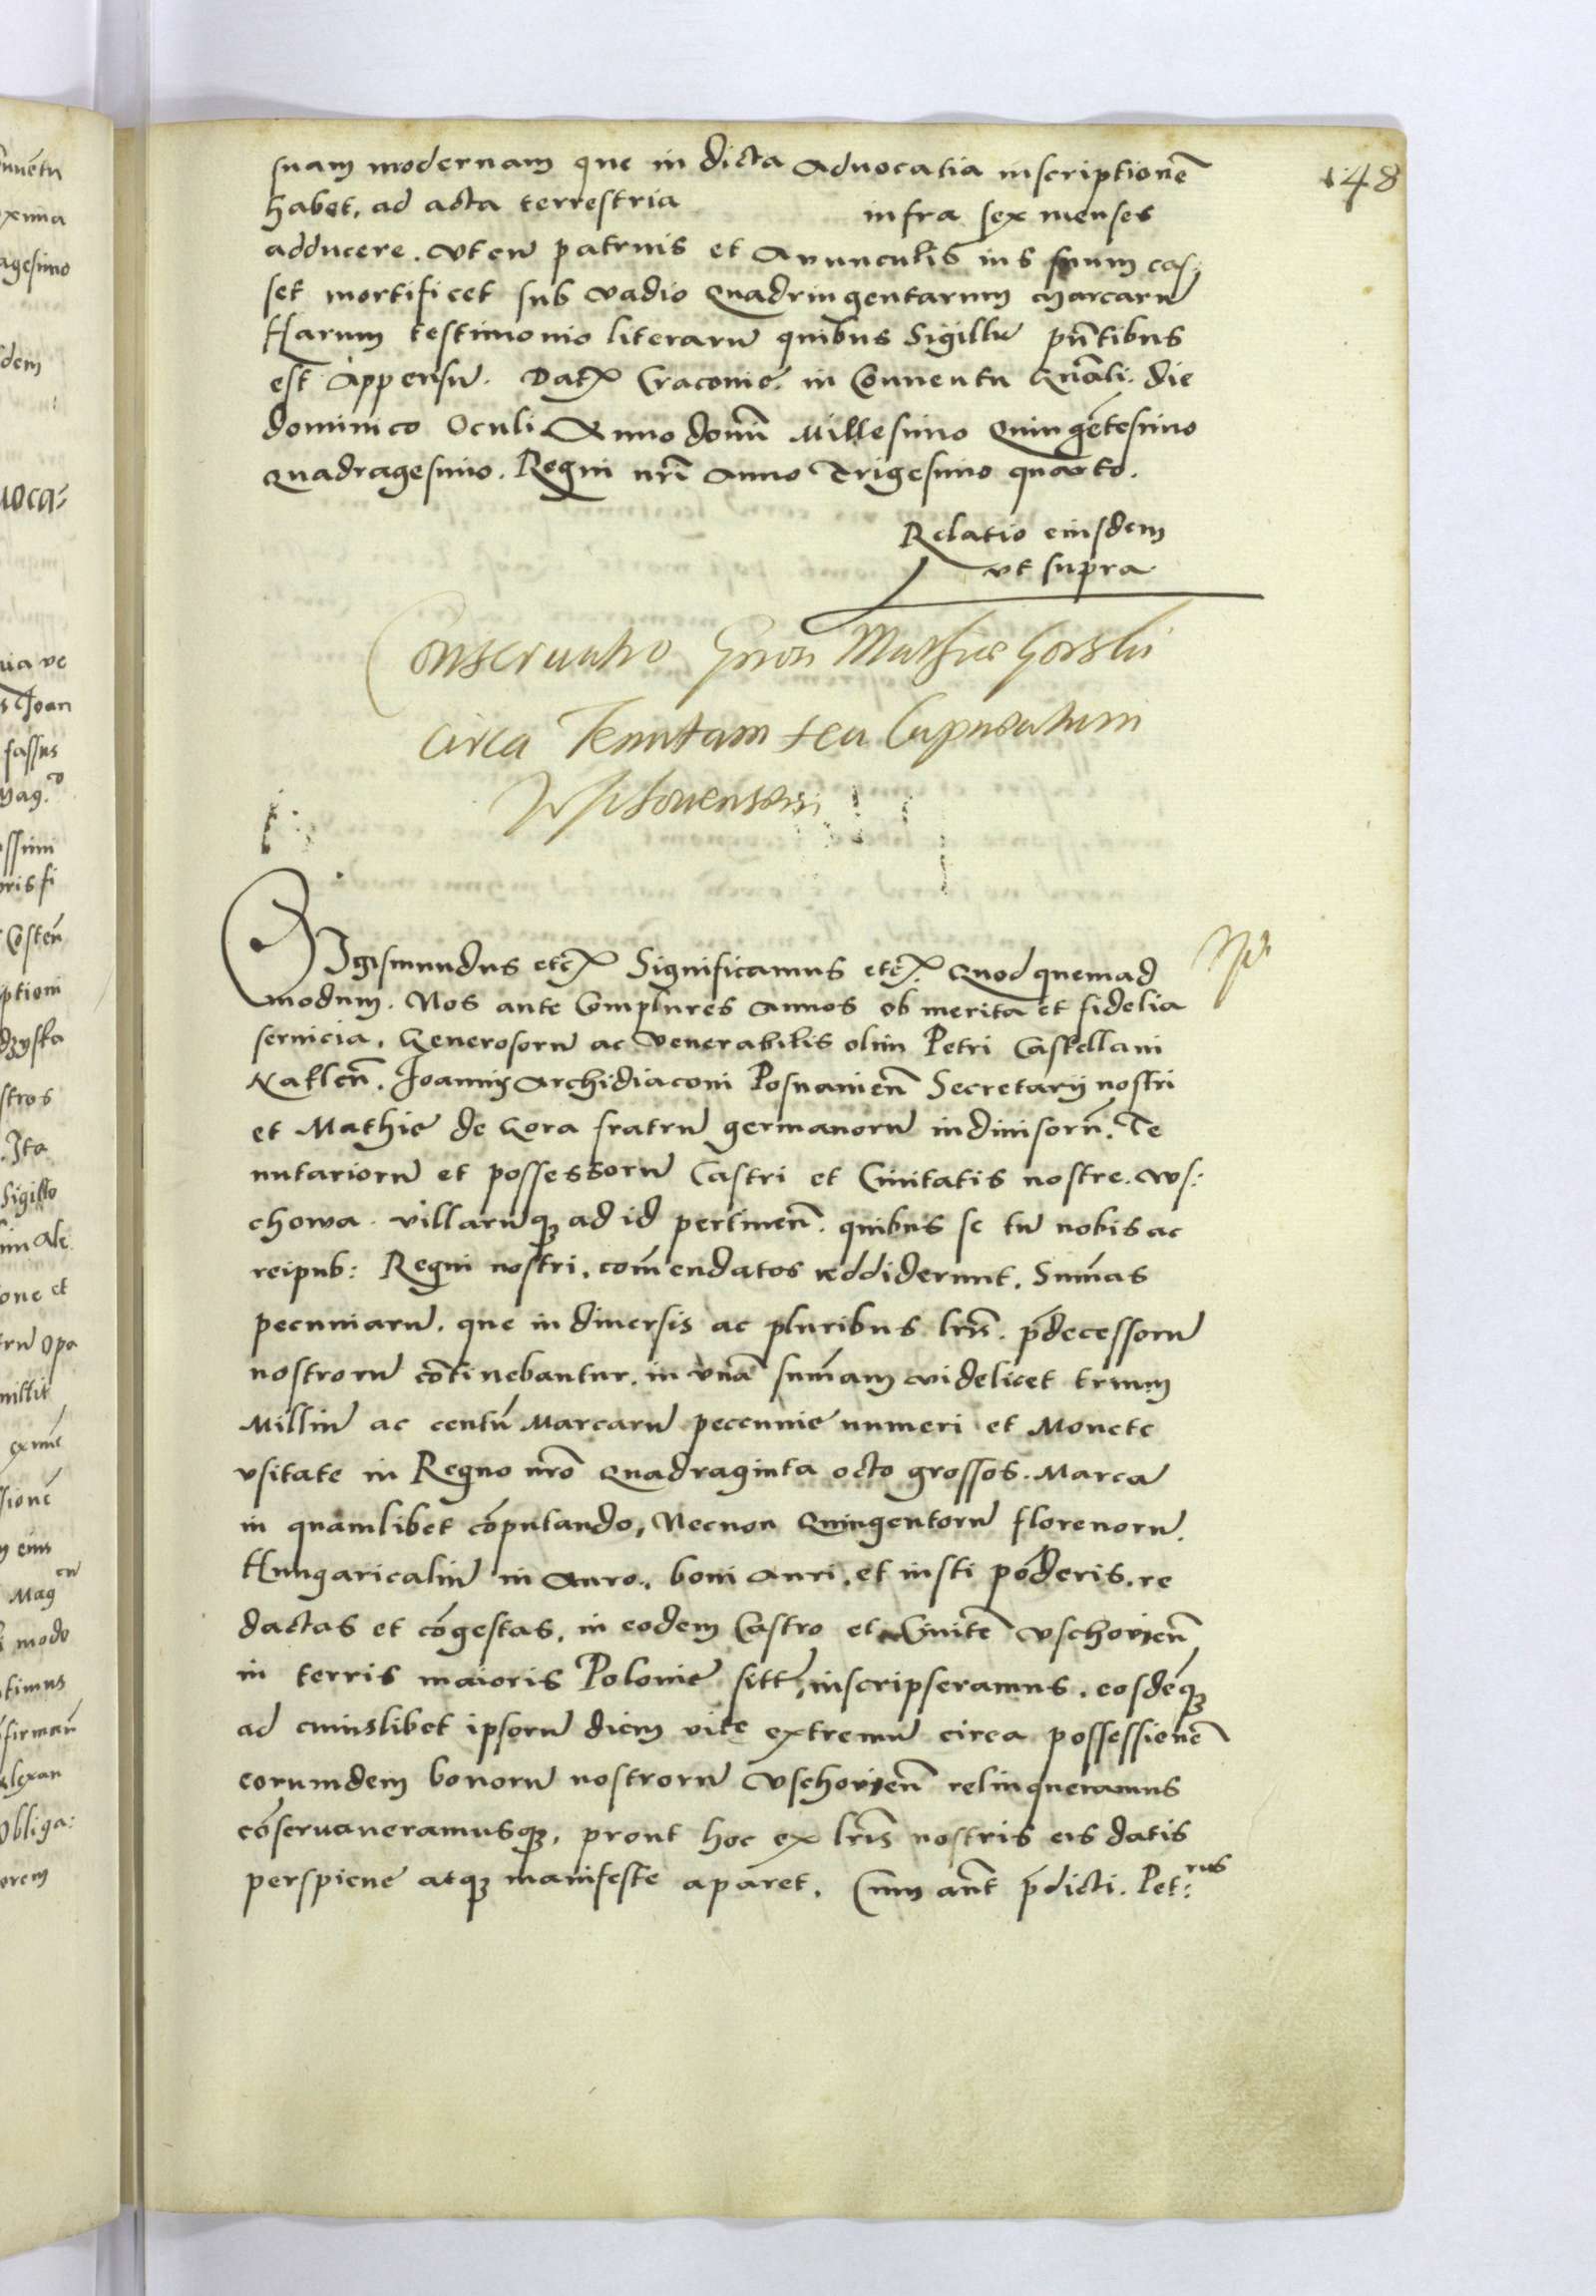 148
suam modernam que in dicta Advocatia inscriptionē
habet, ad acta terrestria infra sex menses
adducere. Vt cū patruis et Avunculis ius suum cas:
set mortificet sub vadio Quadringentarum Marcarū
Harum testimonio literarū quibus Sigillū pn̄tibus
est Appensū. Datꝭ Cracovie. in Conventu Gn̄ali. die
dominico Oculi Anno domī Millesimo Quingētesimo
Quadragesimo. Regni nr̄i Anno Trigesimo quarto.
Relatio eiusdem
vt supra
Conservatio Gnosi Mathie Gorski
circa Tenutam seu Capneatum
Vschovensem
Sigismundus etcꝭ Significamus etcꝭ. Quod quemad
modum. Nos ante Complures Annos ob merita et fidelia
servicia, Generosorū ac Venerabilis olim Petri Castellani
Naklen̄. Joannis Archidiaconi Posnanien̄ Secretarij nostri
et Mathie de Gora fratrū germanorū indivisorū. Te
nutariorū et possessorū Castri et Civitatis nostre. Vs:
chowa. villarūqꝫ ad id pertinen̄. quibus se tū nobis ac
reipub: Regni nostri, com̄endatos reddiderunt, Sum̄as
pecuniarū. que in diversis ac pluribus lr̄is. p̄decessorū
nostrorū cōtinebantur. in vnā sum̄am videlicet trium
Milliū ac centū Marcarū peccunie numeri et Monete
vsitate in Regno nr̄o Quadraginta octo grossos. Marcā
in quamlibet cōputando, Necnon Quingentorū florenorū.
Hungaricaliū in Auro., boni Auri, et iusti pōderis. re
dactas et cōgestas, in eodem Castro et Civitē Vschovien̄
in terris maioris Polonie sitt, inscripseramus. eosdēqꝫ
ad cuiuslibet ipsorū diem vite extremū circa possessionē
eorumdem bonorū nostrorū Vschovien̄ relinqueramus
cōservaveramusqꝫ, prout hoc ex lr̄is nostris eis datis
perspicue atqꝫ manifeste aparet. Cum aūt p̄dicti. Pet:rus